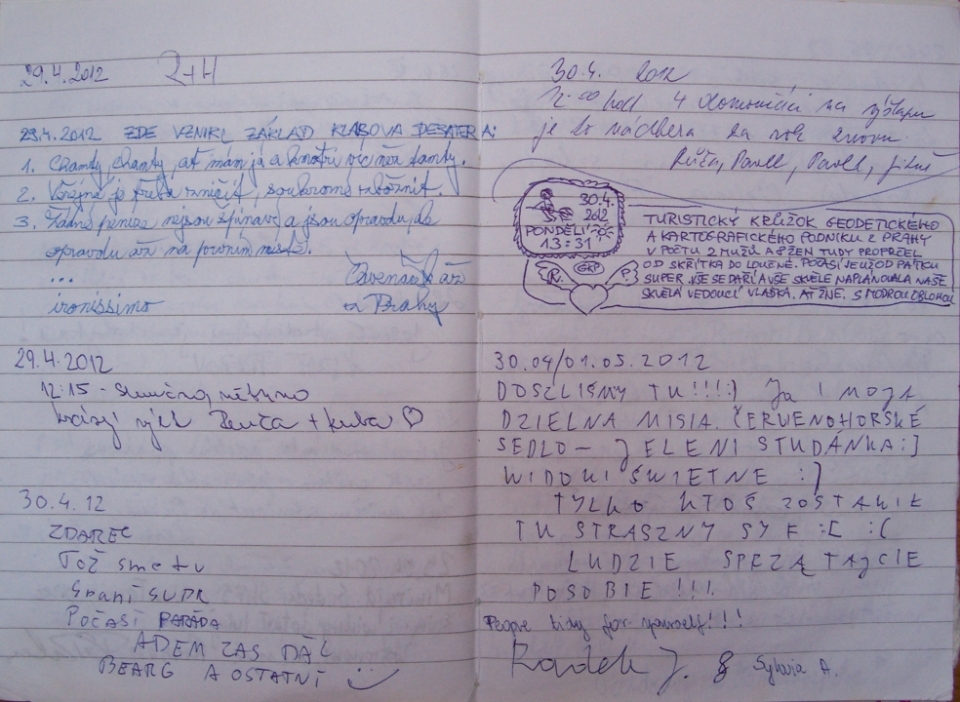 29.4.2012 R+H
29.4.2012 ZDE VZNIKL ZÁKLAD KLÁBOVA DESATERA:
1. Chamty, chamty, ať mám já a
2. Veřejné je třeba zničit, soukromé
3. Žádné peníze nejsou špinavé a jsou opravdu, ale
opravdu až na prvním místě.
...
ironissimo z Prahy
29.4.2012
12:15 -
+ Kuba ♡
30.4.12
ZDAREC
Tož sme tu
Spaní SUPR
Počasí PARÁDA
ADEM ZAS DÁL
BEARG A OSTATNÍ
30.4. 2012
12:00 hod 4 Olomoučáci na výstupu
je to nádhera za rok znovu
Pavel, Pavel,
30.4.
2012
PONDĚLÍ
13:31
R. GKP P.
TURISTICKÝ KRŮŽOK GEODETICKÉHO
A KARTOGRAFICKÉHO PODNIKU Z PRAHY
V POČTU 2 MUŽŮ A 8 ŽEN TUDY PROPRŽEL
OD SKŘÍTKA DO LOUČNÉ. POČASÍ JE UŽ OD PÁTKU
SUPER, VŠE SE DAŘÍ A VŠE SKVĚLE NAPLÁNOVALA NAŠE
SKVĚLÁ VEDOUCÍ VLAĎKA. AŤ ŽNE. S MODROU OBLOHOU
30.04/01.05.2012
DOSZLIŚMY TU!!!:) Ja i moja
DZIELNA MISIA. ČERVENOHORSKÉ
SEDLO – JELENI STUDÁNKA:]
WIDOKI ŚWIETNE :]
TYLKO KTOŚ ZOSTAWIŁ
TU STRASZNY SYF :[ :(
LUDZIE SPRZĄTAJCIE
PO SOBIE !!!
People tidy for yourself!!!
Radek J. & Sylwia A.